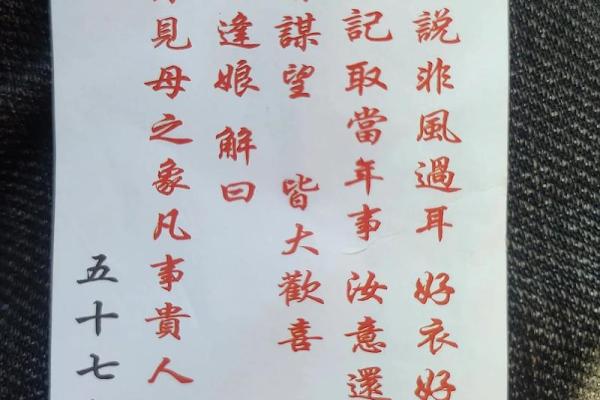 說非風過耳 好衣好
記取當年事 汝意還
謀望 皆大歡喜
逢娘 解曰
見母之象凡事貴人
五十七